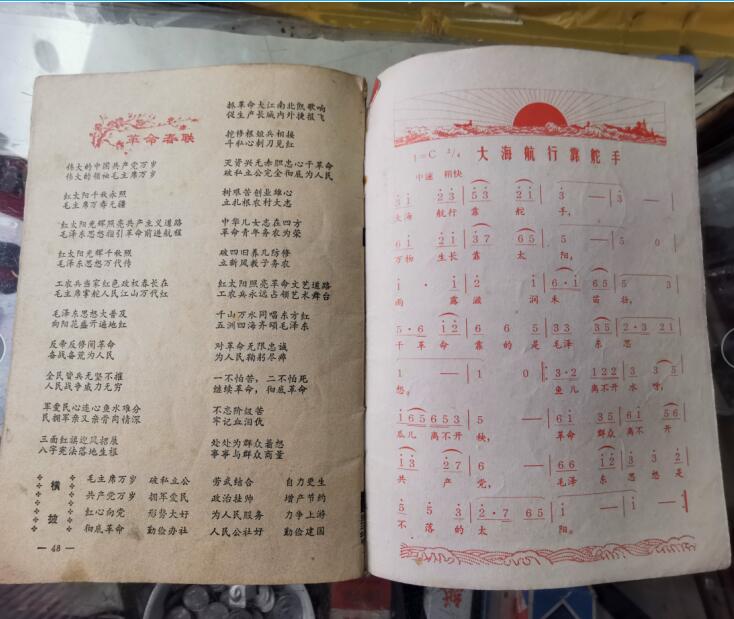 革命春联
伟大的中国共产党万岁
伟大的领袖毛主席万岁
红太阳千秋永照
毛主席万寿无疆
红太阳光辉照亮共产主义道路
毛泽东思想指引革命前进航程
红太阳光辉千秋照
毛泽东思想万代传
工农兵当家红色政权春长在
毛主席掌舵人民江山万代红
毛泽东思想大普及
向阳花盛开遍地红
反帝反修闹革命
备战备荒为人民
全民皆兵无坚不摧
人民战争威力无穷
军爱民心连心鱼水难分
民拥军亲又亲骨肉情深
三面红旗迎风招展
八字宪法落地生根
抓革命大江南北凯歌响
促生产长城内外捷报飞
挖修根短兵相接
斗私心刺刀见红
灭资兴无赤胆忠心干革命
破私立公完全彻底为人民
树艰苦创业雄心
立扎根农村大志
中华儿女志在四方
革命青年务农为荣
破四旧养儿防修
立新风教子务农
红太阳照亮革命文艺道路
工农兵永远占领艺术舞台
千山万水同唱东方红
五洲四海齐颂毛泽东
对革命无限忠诚
为人民鞠躬尽瘁
一不怕苦，二不怕死
继续革命，彻底革命
不忘阶级苦
牢记血泪仇
处处为群众着想
事事与群众商量
横披
毛主席万岁 破私立公 劳武结合 自力更生
共产党万岁 拥军爱民 政治挂帅 增产节约
红心向党 形势大好 为人民服务 力争上游
彻底革命 勤俭办社 人民公社好 勤俭建国
— 48 —
1=C 2/4 大海航行靠舵手
中速 稍快
大海 航行 靠 舵 手，
万物 生长 靠 太 阳，
雨 露 滋 润 禾 苗 壮，
干 革 命 靠 的 是 毛 泽 东 思
想。 鱼儿 离不开 水 呀，
瓜儿 离不开 秧， 革命 群众 离不 开
共 产 党， 毛 泽 东 思 想 是
不 落 的 太 阳。